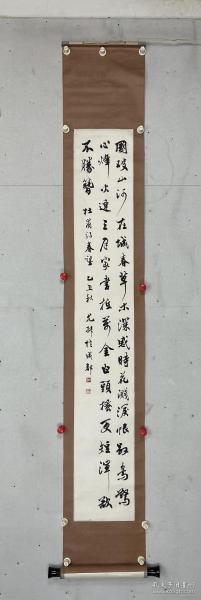 國破山河在城春草木深感時花濺淚恨別鳥驚
心烽火連三月家書抵萬金白頭搔更短渾欲
不勝簪 杜甫詩春望 乙丑秋 光 於成都